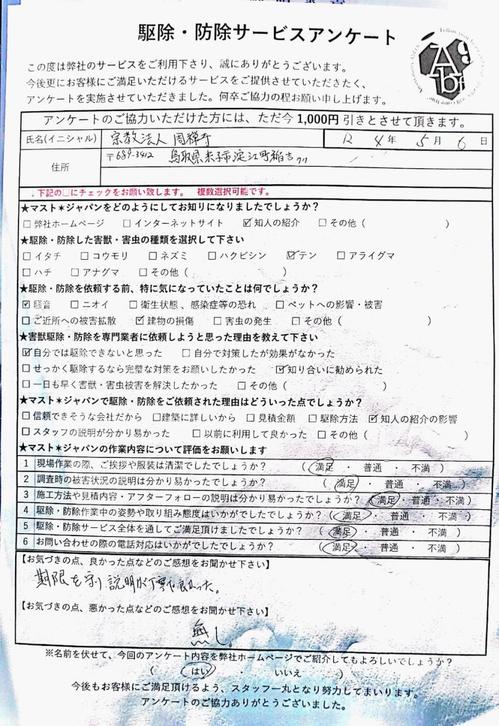 駆除・防除サービスアンケート
この度は弊社のサービスをご利用下さり、誠にありがとうございます。
今後更にお客様にご満足いただけるサービスをご提供させていただきたく、
アンケートを実施させていただきました。何卒ご協力の程お願い申し上げます。
アンケートのご協力いただけた方には、ただ今1,000円 引きとさせて頂きます。
氏名(イニシャル) 宗教法人 R 4 年 5 月 6 日
住所 〒689-3412 鳥取県米子市淀江町稲吉
下記の□にチェックをお願い致します。 複数選択可能です。
★マスト★ジャパンをどのようにしてお知りになりましたでしょうか?
□弊社ホームページ □インターネットサイト ☑知人の紹介 □その他( )
★駆除・防除した害獣・害虫の種類を選択して下さい
□イタチ □コウモリ □ネズミ □ハクビシン ☑テン □アライグマ
□ハチ □アナグマ □その他( )
★駆除・防除を依頼する前、特に気になっていたことは何でしょうか?
☑騒音 □ニオイ □衛生状態、感染症等の恐れ □ペットへの影響・被害
□ご近所への被害拡散 ☑建物の損傷 □害虫の発生 □その他( )
★害獣駆除・防除を専門業者に依頼しようと思った理由を教えて下さい
☑自分では駆除できないと思った □自分で対策したが効果がなかった
□せっかく駆除するなら完璧な対策をお願いしたかった ☑知り合いに勧められた
□一日も早く害獣・害虫被害を解決したかった □その他( )
★マスト★ジャパンで駆除・防除をご依頼された理由はどういった点でしょうか?
□信頼できそうな会社だから □建築に詳しいから □見積金額 □駆除方法 ☑知人の紹介の影響
□スタッフの説明が分かり易かった □以前に利用して良かった □その他( )
★マスト★ジャパンの作業内容について評価をお願いします
1 現場作業の際、ご挨拶や服装は清潔でしたでしょうか? ( 満足 ・ 普通 ・ 不満 )
2 調査時の被害状況の説明は分かり易かったでしょうか? ( 満足 ・ 普通 ・ 不満 )
3 施工方法や見積内容・アフターフォローの説明は分かり易かったでしょうか? ( 満足 ・ 普通 ・ 不満 )
4 駆除・防除作業中の姿勢や取り組み態度はいかがでしたでしょうか? ( 満足 ・ 普通 ・ 不満 )
5 駆除・防除サービス全体を通してご満足頂けましたでしょうか? ( 満足 ・ 普通 ・ 不満 )
6 お問い合わせの際の電話対応はいかがでしたでしょうか? ( 満足 ・ 普通 ・ 不満 )
【お気づきの点、良かった点などのご感想をお聞かせ下さい】
期限を守り説明が丁寧で良かった。
【お気づきの点、悪かった点などのご感想をお聞かせ下さい】
無し
※名前を伏せて、今回のアンケート内容を弊社ホームページでご紹介してもよろしいでしょうか?
( はい ・ いいえ )
今後もお客様にご満足頂けるよう、スタッフ一丸となり努力してまいります。
アンケートのご協力ありがとうございました。